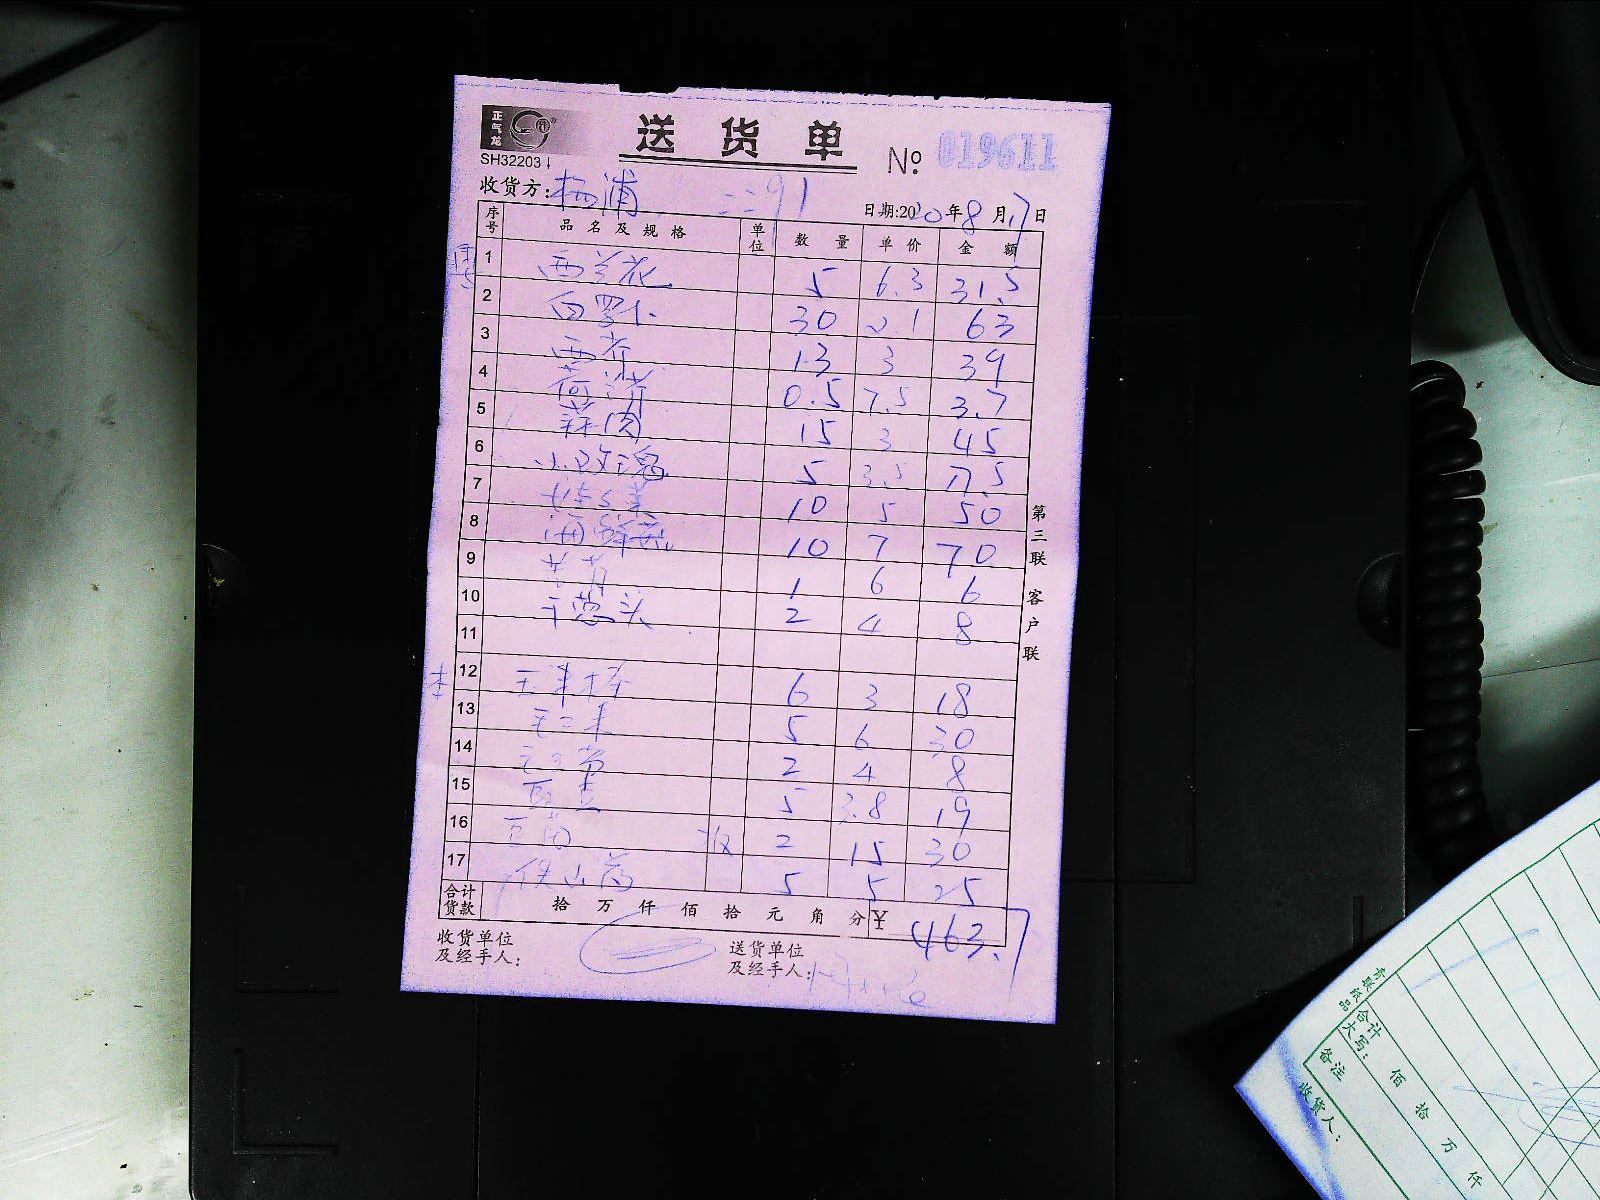 正气龙
SH32203
送货单
№ 019611
收货方:杨浦
日期:2020年8月17日
序号 品名及规格 单位 数量 单价 金额
1 西兰花 5 6.3 31.5
2 白罗卜 30 2.1 63
3 西芹 13 3 39
4 0.5 7.5 3.7
5 蒜肉 15 3 45
6 小玫瑰 5 3.5 17.5
7 10 5 50
8 海鲜菇 10 7 70
9 1 6 6
10 干葱头 2 4 8
11
12 玉米棒 6 3 18
13 5 6 30
14 2 4 8
15 5 3.8 19
16 2 15 30
17 铁山药 5 5 25
合计货款 拾 万 仟 佰 拾 元 角 分 ¥ 463.7
收货单位及经手人:
送货单位及经手人:
第三联 客户联
合计大写: 佰 拾 万 仟
备注
收货人: